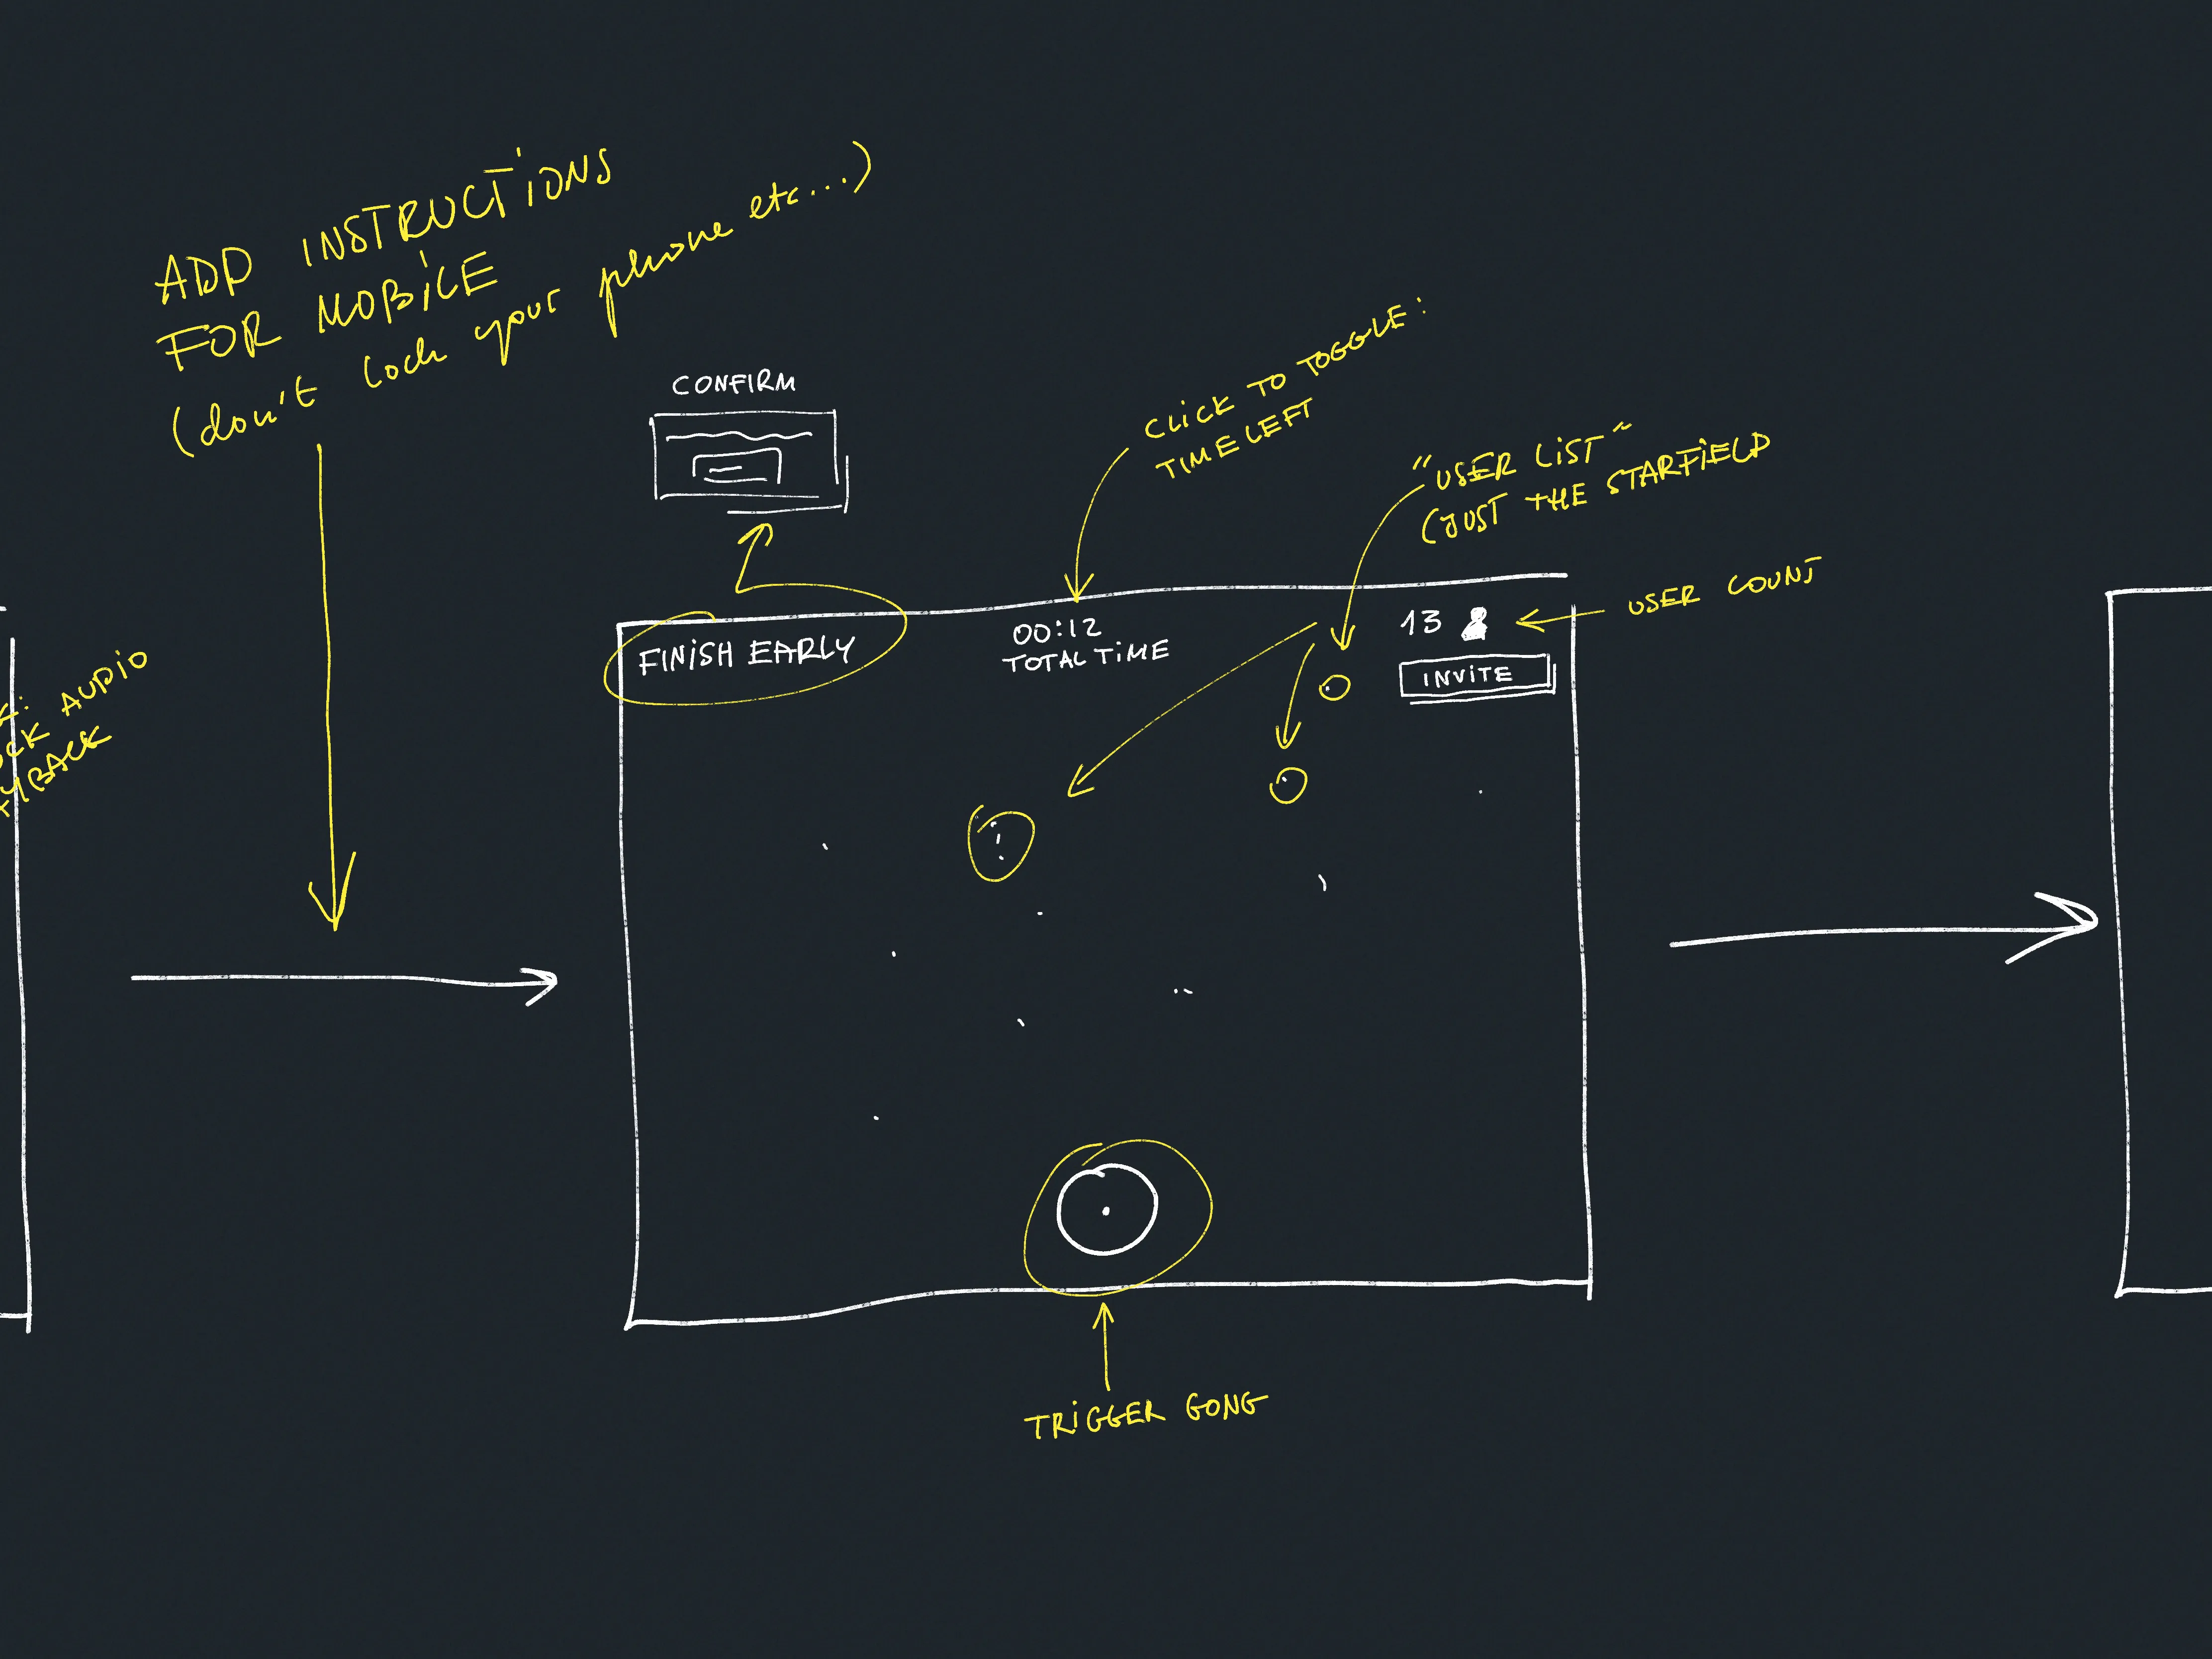 ADD INSTRUCTIONS
FOR MOBILE
(don't lock your phone etc...)
CONFIRM
CLICK TO TOGGLE:
TIME LEFT
"USER LIST"
(JUST THE STARFIELD
USER COUNT
FINISH EARLY
00:12
TOTAL TIME
13
INVITE
AUDIO
TRIGGER GONG